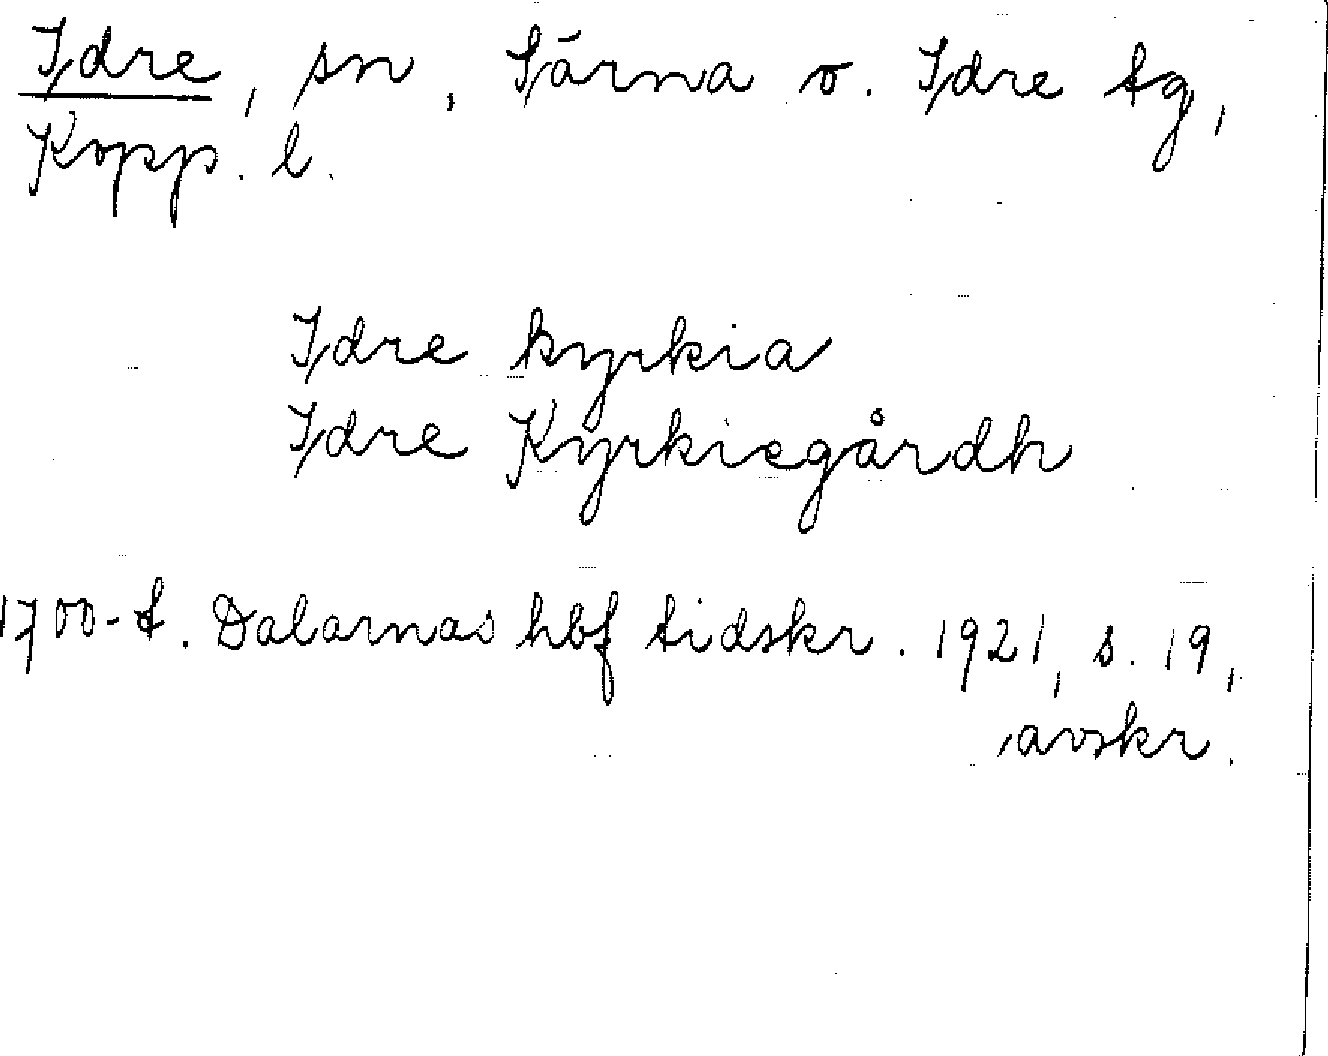 Idre, sn, Särna o. Idre tg,
Kopp. l.
Idre kyrkia
Idre Kyrkiegårdh
1700-t. Dalarnas hbf tidskr. 1921, s. 19,
avskr.